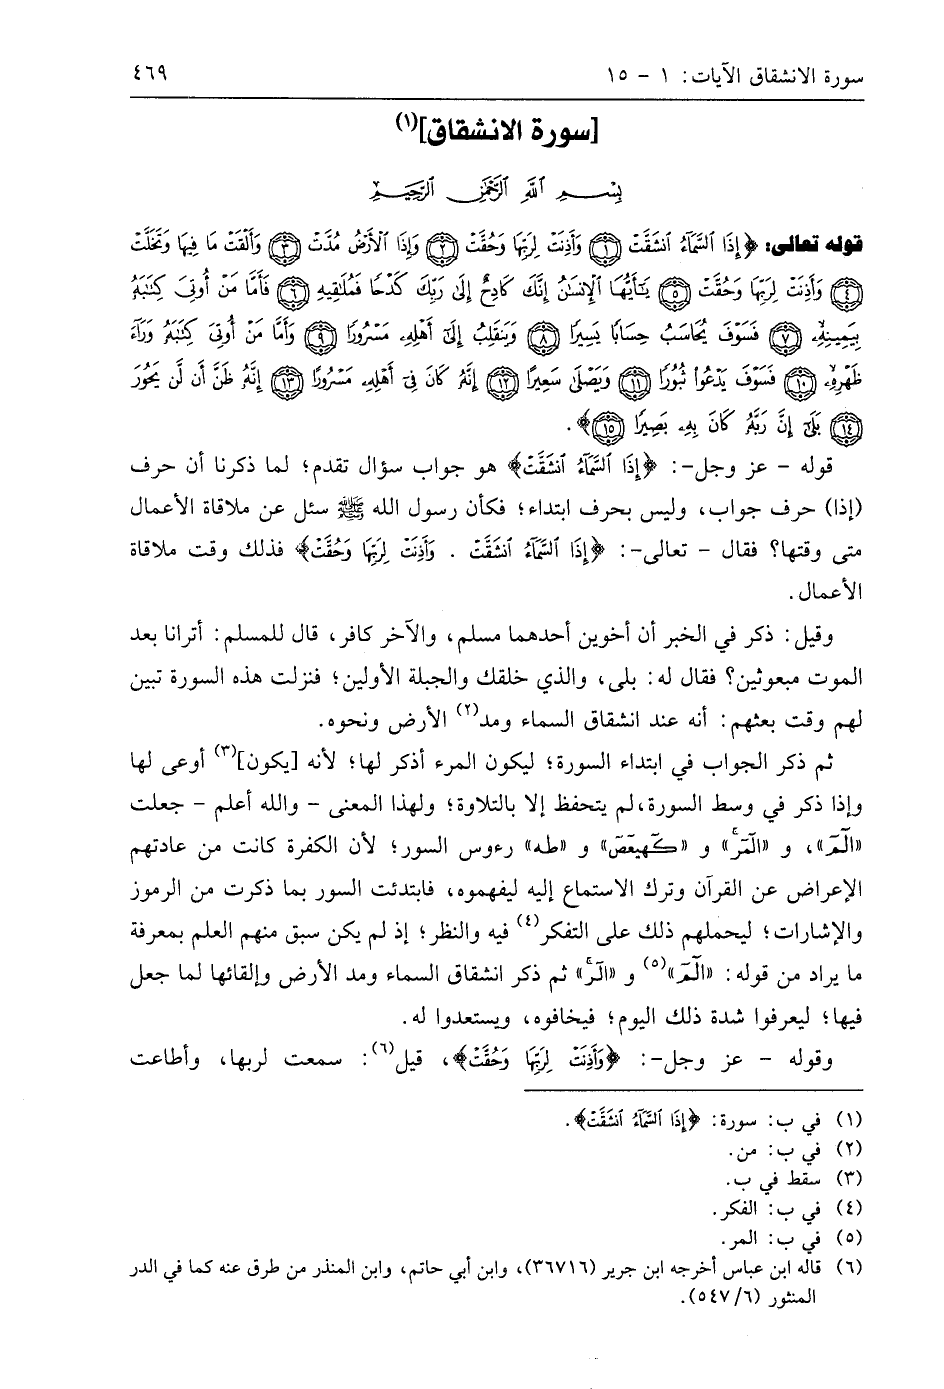 سورة الانشقاق الآيات: ١ - ١٥ ٤٦٩
[سورة الانشقاق](١)
بِسْمِ اللَّهِ الرَّحْمَٰنِ الرَّحِيمِ
قوله تعالى: ﴿إِذَا ٱلسَّمَآءُ ٱنشَقَّتْ ۝١ وَأَذِنَتْ لِرَبِّهَا وَحُقَّتْ ۝٢ وَإِذَا ٱلْأَرْضُ مُدَّتْ ۝٣ وَأَلْقَتْ مَا فِيهَا وَتَخَلَّتْ
۝٤ وَأَذِنَتْ لِرَبِّهَا وَحُقَّتْ ۝٥ يَٰٓأَيُّهَا ٱلْإِنسَٰنُ إِنَّكَ كَادِحٌ إِلَىٰ رَبِّكَ كَدْحًا فَمُلَٰقِيهِ ۝٦ فَأَمَّا مَنْ أُوتِىَ كِتَٰبَهُۥ
بِيَمِينِهِۦ ۝٧ فَسَوْفَ يُحَاسَبُ حِسَابًا يَسِيرًا ۝٨ وَيَنقَلِبُ إِلَىٰٓ أَهْلِهِۦ مَسْرُورًا ۝٩ وَأَمَّا مَنْ أُوتِىَ كِتَٰبَهُۥ وَرَآءَ
ظَهْرِهِۦ ۝١٠ فَسَوْفَ يَدْعُوا۟ ثُبُورًا ۝١١ وَيَصْلَىٰ سَعِيرًا ۝١٢ إِنَّهُۥ كَانَ فِىٓ أَهْلِهِۦ مَسْرُورًا ۝١٣ إِنَّهُۥ ظَنَّ أَن لَّن يَحُورَ
۝١٤ بَلَىٰٓ إِنَّ رَبَّهُۥ كَانَ بِهِۦ بَصِيرًا ۝١٥﴾.
قوله - عز وجل-: ﴿إِذَا ٱلسَّمَآءُ ٱنشَقَّتْ﴾ هو جواب سؤال تقدم؛ لما ذكرنا أن حرف
(إذا) حرف جواب، وليس بحرف ابتداء؛ فكأن رسول الله ﷺ سئل عن ملاقاة الأعمال
متى وقتها؟ فقال - تعالى-: ﴿إِذَا ٱلسَّمَآءُ ٱنشَقَّتْ . وَأَذِنَتْ لِرَبِّهَا وَحُقَّتْ﴾ فذلك وقت ملاقاة
الأعمال.
وقيل: ذكر في الخبر أن أخوين أحدهما مسلم، والآخر كافر، قال للمسلم: أترانا بعد
الموت مبعوثين؟ فقال له: بلى، والذي خلقك والجبلة الأولين؛ فنزلت هذه السورة تبين
لهم وقت بعثهم: أنه عند انشقاق السماء ومد(٢) الأرض ونحوه.
ثم ذكر الجواب في ابتداء السورة؛ ليكون المرء أذكر لها؛ لأنه [يكون](٣) أوعى لها
وإذا ذكر في وسط السورة،لم يتحفظ إلا بالتلاوة؛ ولهذا المعنى - والله أعلم - جعلت
«الٓمٓ»، و «الٓمٓرۚ» و «كٓهيعٓصٓ» و «طه» رءوس السور؛ لأن الكفرة كانت من عادتهم
الإعراض عن القرآن وترك الاستماع إليه ليفهموه، فابتدئت السور بما ذكرت من الرموز
والإشارات؛ ليحملهم ذلك على التفكر(٤) فيه والنظر؛ إذ لم يكن سبق منهم العلم بمعرفة
ما يراد من قوله: «الٓمٓ»(٥) و «الٓرۚ» ثم ذكر انشقاق السماء ومد الأرض وإلقائها لما جعل
فيها؛ ليعرفوا شدة ذلك اليوم؛ فيخافوه، ويستعدوا له.
وقوله - عز وجل-: ﴿وَأَذِنَتْ لِرَبِّهَا وَحُقَّتْ﴾، قيل(٦): سمعت لربها، وأطاعت
(١) في ب: سورة: ﴿إِذَا ٱلسَّمَآءُ ٱنشَقَّتْ﴾.
(٢) في ب: من.
(٣) سقط في ب.
(٤) في ب: الفكر.
(٥) في ب: المر.
(٦) قاله ابن عباس أخرجه ابن جرير (٣٦٧١٦)، وابن أبي حاتم، وابن المنذر من طرق عنه كما في الدر
المنثور (٥٤٧/٦).